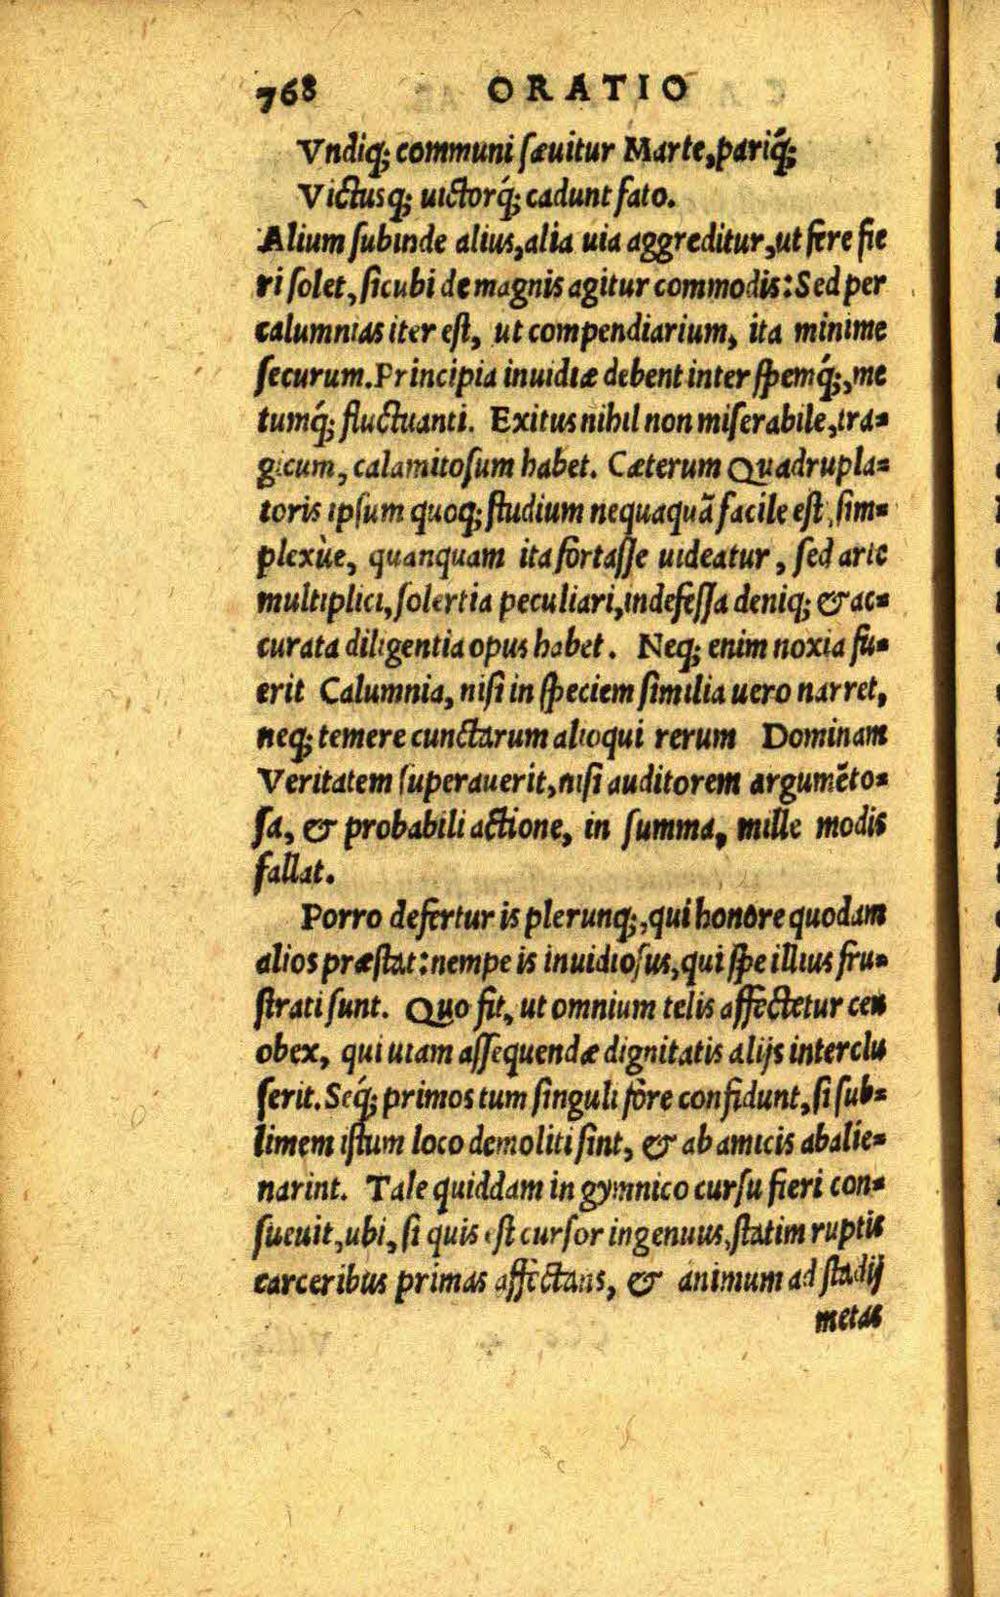 768 ORATIO
Vndiq; communi sæuitur Marte, pariq́;
Victusq; uictorq́; cadunt fato.
Alium subinde alius, alia uia aggreditur, ut fere fie
ri solet, sicubi de magnis agitur commodis: Sed per
calumnias iter est, ut compendiarium, ita minime
securum. Principia inuidiæ debent inter spemq́;, me
tumq́; fluctuanti. Exitus nihil non miserabile, tra=
gicum, calamitosum habet. Cæterum Quadrupla=
toris ipsum quoq; studium nequaquã facile est, sim=
plexùe, quanquam ita fortasse uideatur, sed arte
multiplici, solertia peculiari, indefessa deniq; & ac=
curata diligentia opus habet. Neq; enim noxia fu=
erit Calumnia, nisi in speciem similia uero narret,
neq; temere cunctarum alioqui rerum Dominam
Veritatem superauerit, nisi auditorem argumẽto=
sa, & probabili actione, in summa, mille modis
fallat.
Porro defertur is plerunq;, qui honore quodam
alios præstat: nempe is inuidiosus, qui spe illius fru=
strati sunt. Quo fit, ut omnium telis affectetur ceu
obex, qui uiam assequendæ dignitatis alijs interclu
serit. Seq́; primos tum singuli fore confidunt, si sub=
limem istum loco demoliti sint, & ab amicis abalie=
narint. Tale quiddam in gymnico cursu fieri con=
sueuit, ubi, si quis est cursor ingenuus, statim ruptis
carceribus primas affectans, & animum ad stadij
metas